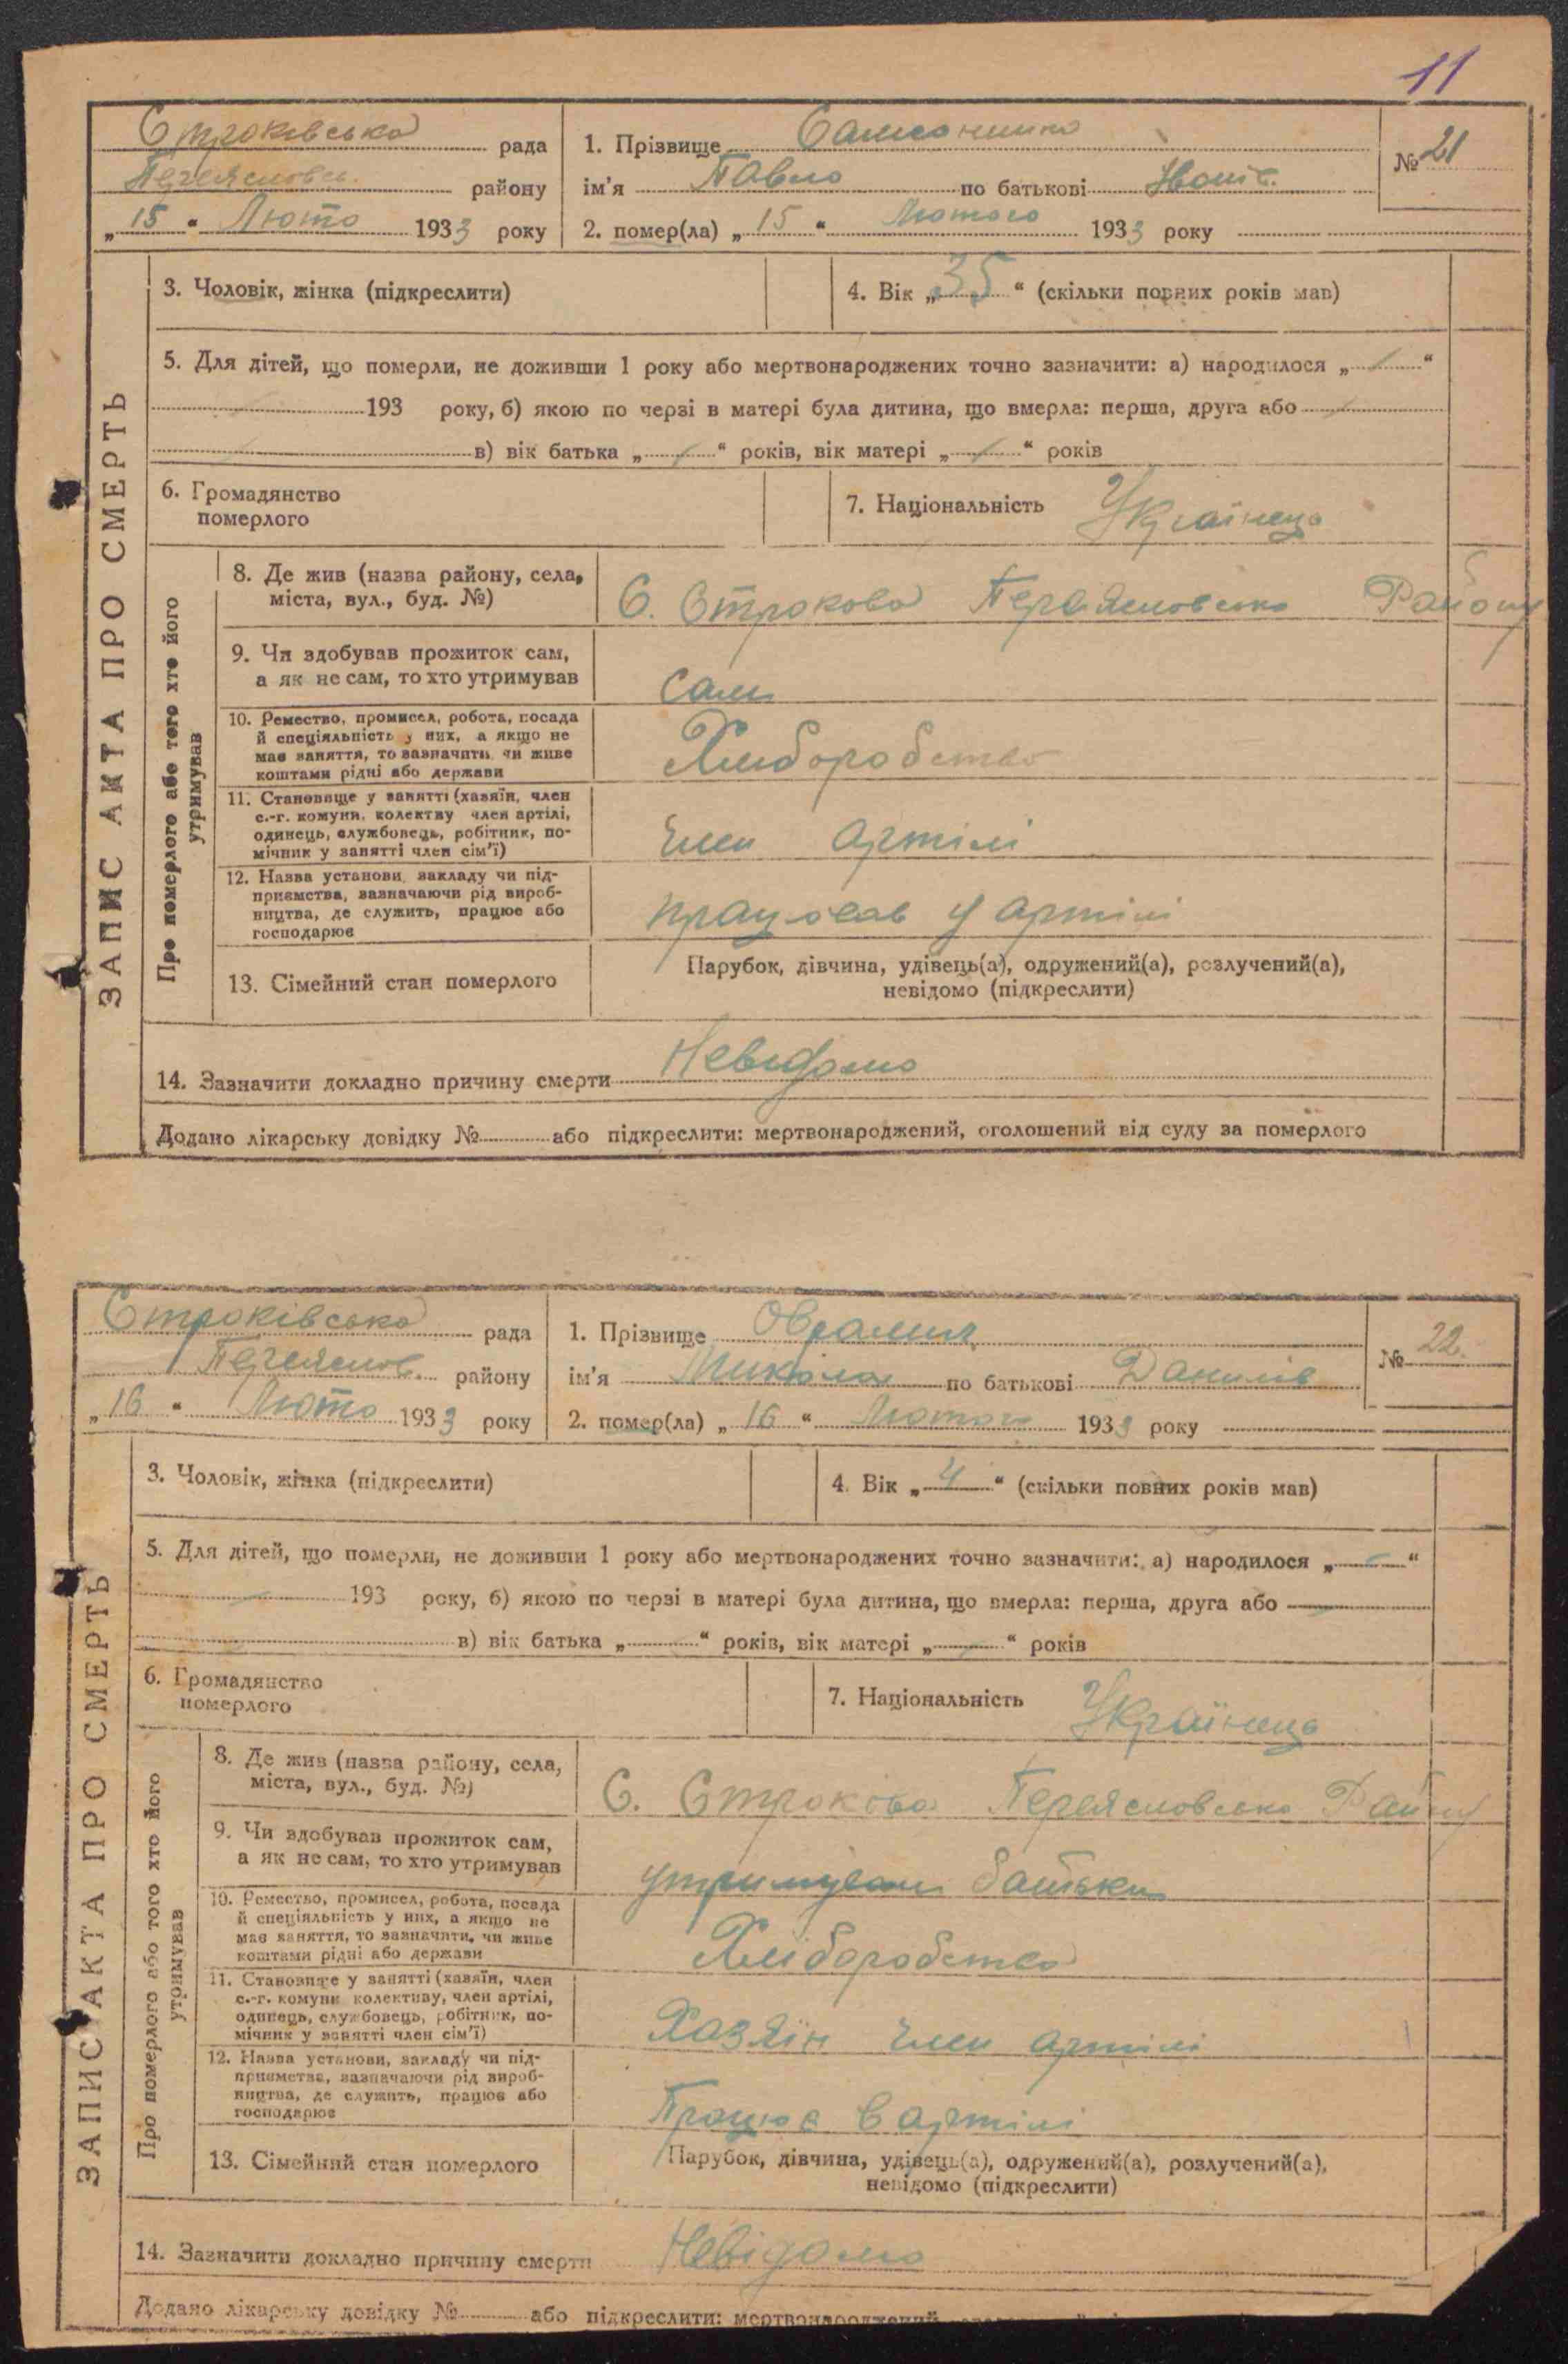 11
Строківська рада
Переясловск. району
„15“ Люто 1933 року
1. Прізвище
ім'я Павло по батькові
2. помер(ла) „15“ Лютого 1933 року
№ 21
ЗАПИС АКТА ПРО СМЕРТЬ
3. Чоловік, жінка (підкреслити)
4. Вік „35“ (скільки повних років мав)
5. Для дітей, що померли, не доживши 1 року або мертвонароджених точно зазначити: а) народилося „ “
193 року, б) якою по черзі в матері була дитина, що вмерла: перша, друга або
в) вік батька „ “ років, вік матері „ “ років
6. Громадянство
померлого
7. Національність Українець
Про померлого або того хто його
утримував
8. Де жив (назва району, села,
міста, вул., буд. №)
С. Строкова Переясловсько Району
9. Чи здобував прожиток сам,
а як не сам, то хто утримував
Сам
10. Ремество, промисел, робота, посада
й спеціяльність у них, а якщо не
має заняття, то зазначити, чи живе
коштами рідні або держави
Хлиборобство
11. Становище у занятті (хазяїн, член
с.-г. комуни, колективу член артілі,
одинець, службовець, робітник, по-
мічник у занятті член сім'ї)
Член артілі
12. Назва установи, закладу чи під-
приємства, зазначаючи рід вироб-
ництва, де служить, працює або
господарює
працював у артілі
13. Сімейний стан померлого
Парубок, дівчина, удівець(а), одружений(а), розлучений(а),
невідомо (підкреслити)
14. Зазначити докладно причину смерти Невидомо
Додано лікарську довідку № або підкреслити: мертвонароджений, оголошений від суду за померлого
Строківська рада
Переяслов. району
„16“ Люто 1933 року
1. Прізвище Оврамич
ім'я Микола по батькові Данилів
2. помер(ла) „16“ Лютого 1933 року
№ 22.
ЗАПИС АКТА ПРО СМЕРТЬ
3. Чоловік, жінка (підкреслити)
4. Вік „4“ (скільки повних років мав)
5. Для дітей, що померли, не доживши 1 року або мертвонароджених точно зазначити: а) народилося „ “
193 року, б) якою по черзі в матері була дитина, що вмерла: перша, друга або
в) вік батька „ “ років, вік матері „ “ років
6. Громадянство
померлого
7. Національність Українець
Про померлого або того хто його
утримував
8. Де жив (назва району, села,
міста, вул., буд. №)
С. Строкова Переясловсько Району
9. Чи здобував прожиток сам,
а як не сам, то хто утримував
утримували батьки
10. Ремество, промисел, робота, посада
й спеціяльність у них, а якщо не
має заняття, то зазначити, чи живе
коштами рідні або держави
Хліборобство
11. Становище у занятті (хазяїн, член
с.-г. комуни колективу, член артілі,
одинець, службовець, робітник, по-
мічник у занятті член сім'ї)
Хазяїн член артілі
12. Назва установи, закладу чи під-
приємства, зазначаючи рід вироб-
ництва, де служить, працює або
господарює
Працює в артілі
13. Сімейний стан померлого
Парубок, дівчина, удівець(а), одружений(а), розлучений(а),
невідомо (підкреслити)
14. Зазначити докладно причину смерти Невідомо
Додано лікарську довідку № або підкреслити: мертвонароджений